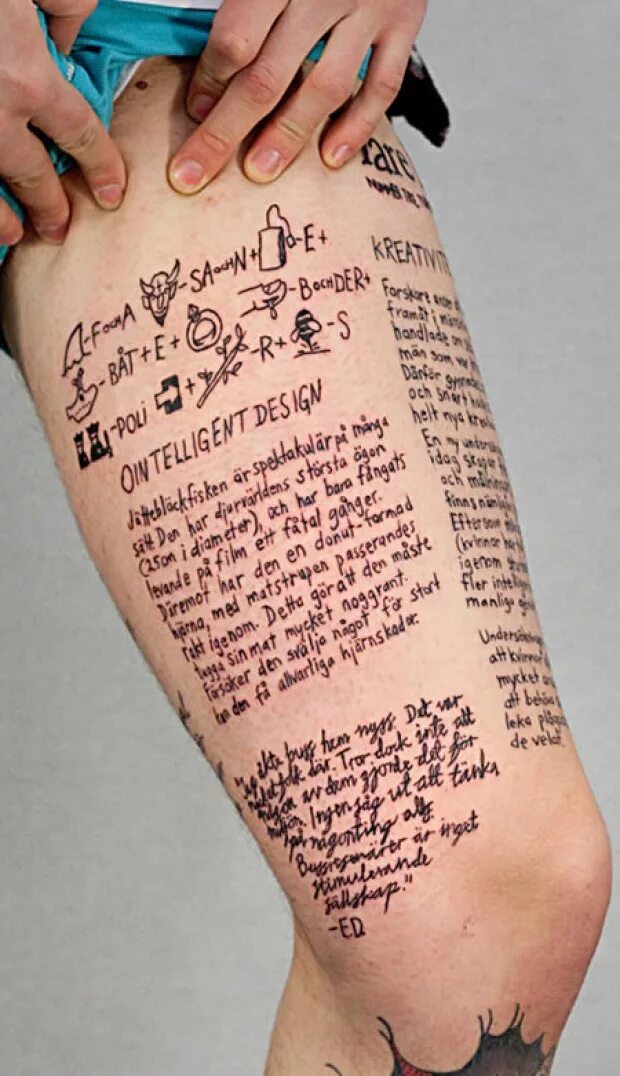 KREATIVIT
-F OCH A
-SA OCH N+
-E+
-BÅT+E+
-B OCH DER+
-POLI
+
-R+
-S
OINTELLIGENT DESIGN
Jättebläckfisken är spektakulär på många
sätt. Den har djurvärldens största ögon
(25cm i diameter), och har bara fångats
levande på film ett fåtal gånger.
Däremot har den en donut-formad
hjärna, med matstrupen passerandes
rakt igenom. Detta gör att den måste
tugga sin mat mycket noggrant.
Försöker den svälja något för stort
kan den få allvarliga hjärnskador.
åkte buss hem nyss. Det var
folk där. Tror dock inte att
någon av dem gjorde det för
miljön. Ingen såg ut att tänka
på någonting alls.
Bussresenärer är inget
stimulerande
sällskap."
-ED
Forskare
framåt i
handlade om
män som
Därför
och smart
helt nya
En ny
idag
och
finns
Eftersom
(kvinnor har
igenom
fler
manliga
att kvinnor
mycket
att behöva
leka
de vekar.